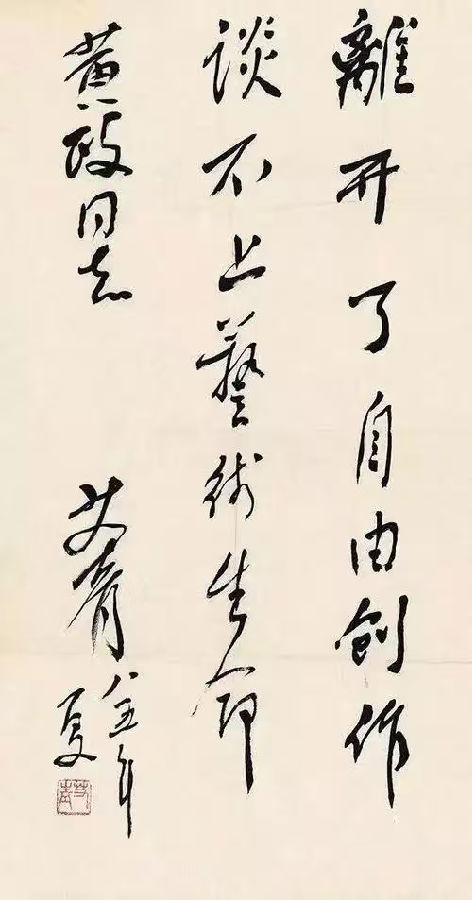 離開了自由創作
談不上藝術生命
黄政同志
艾青
八五年
夏
艾青